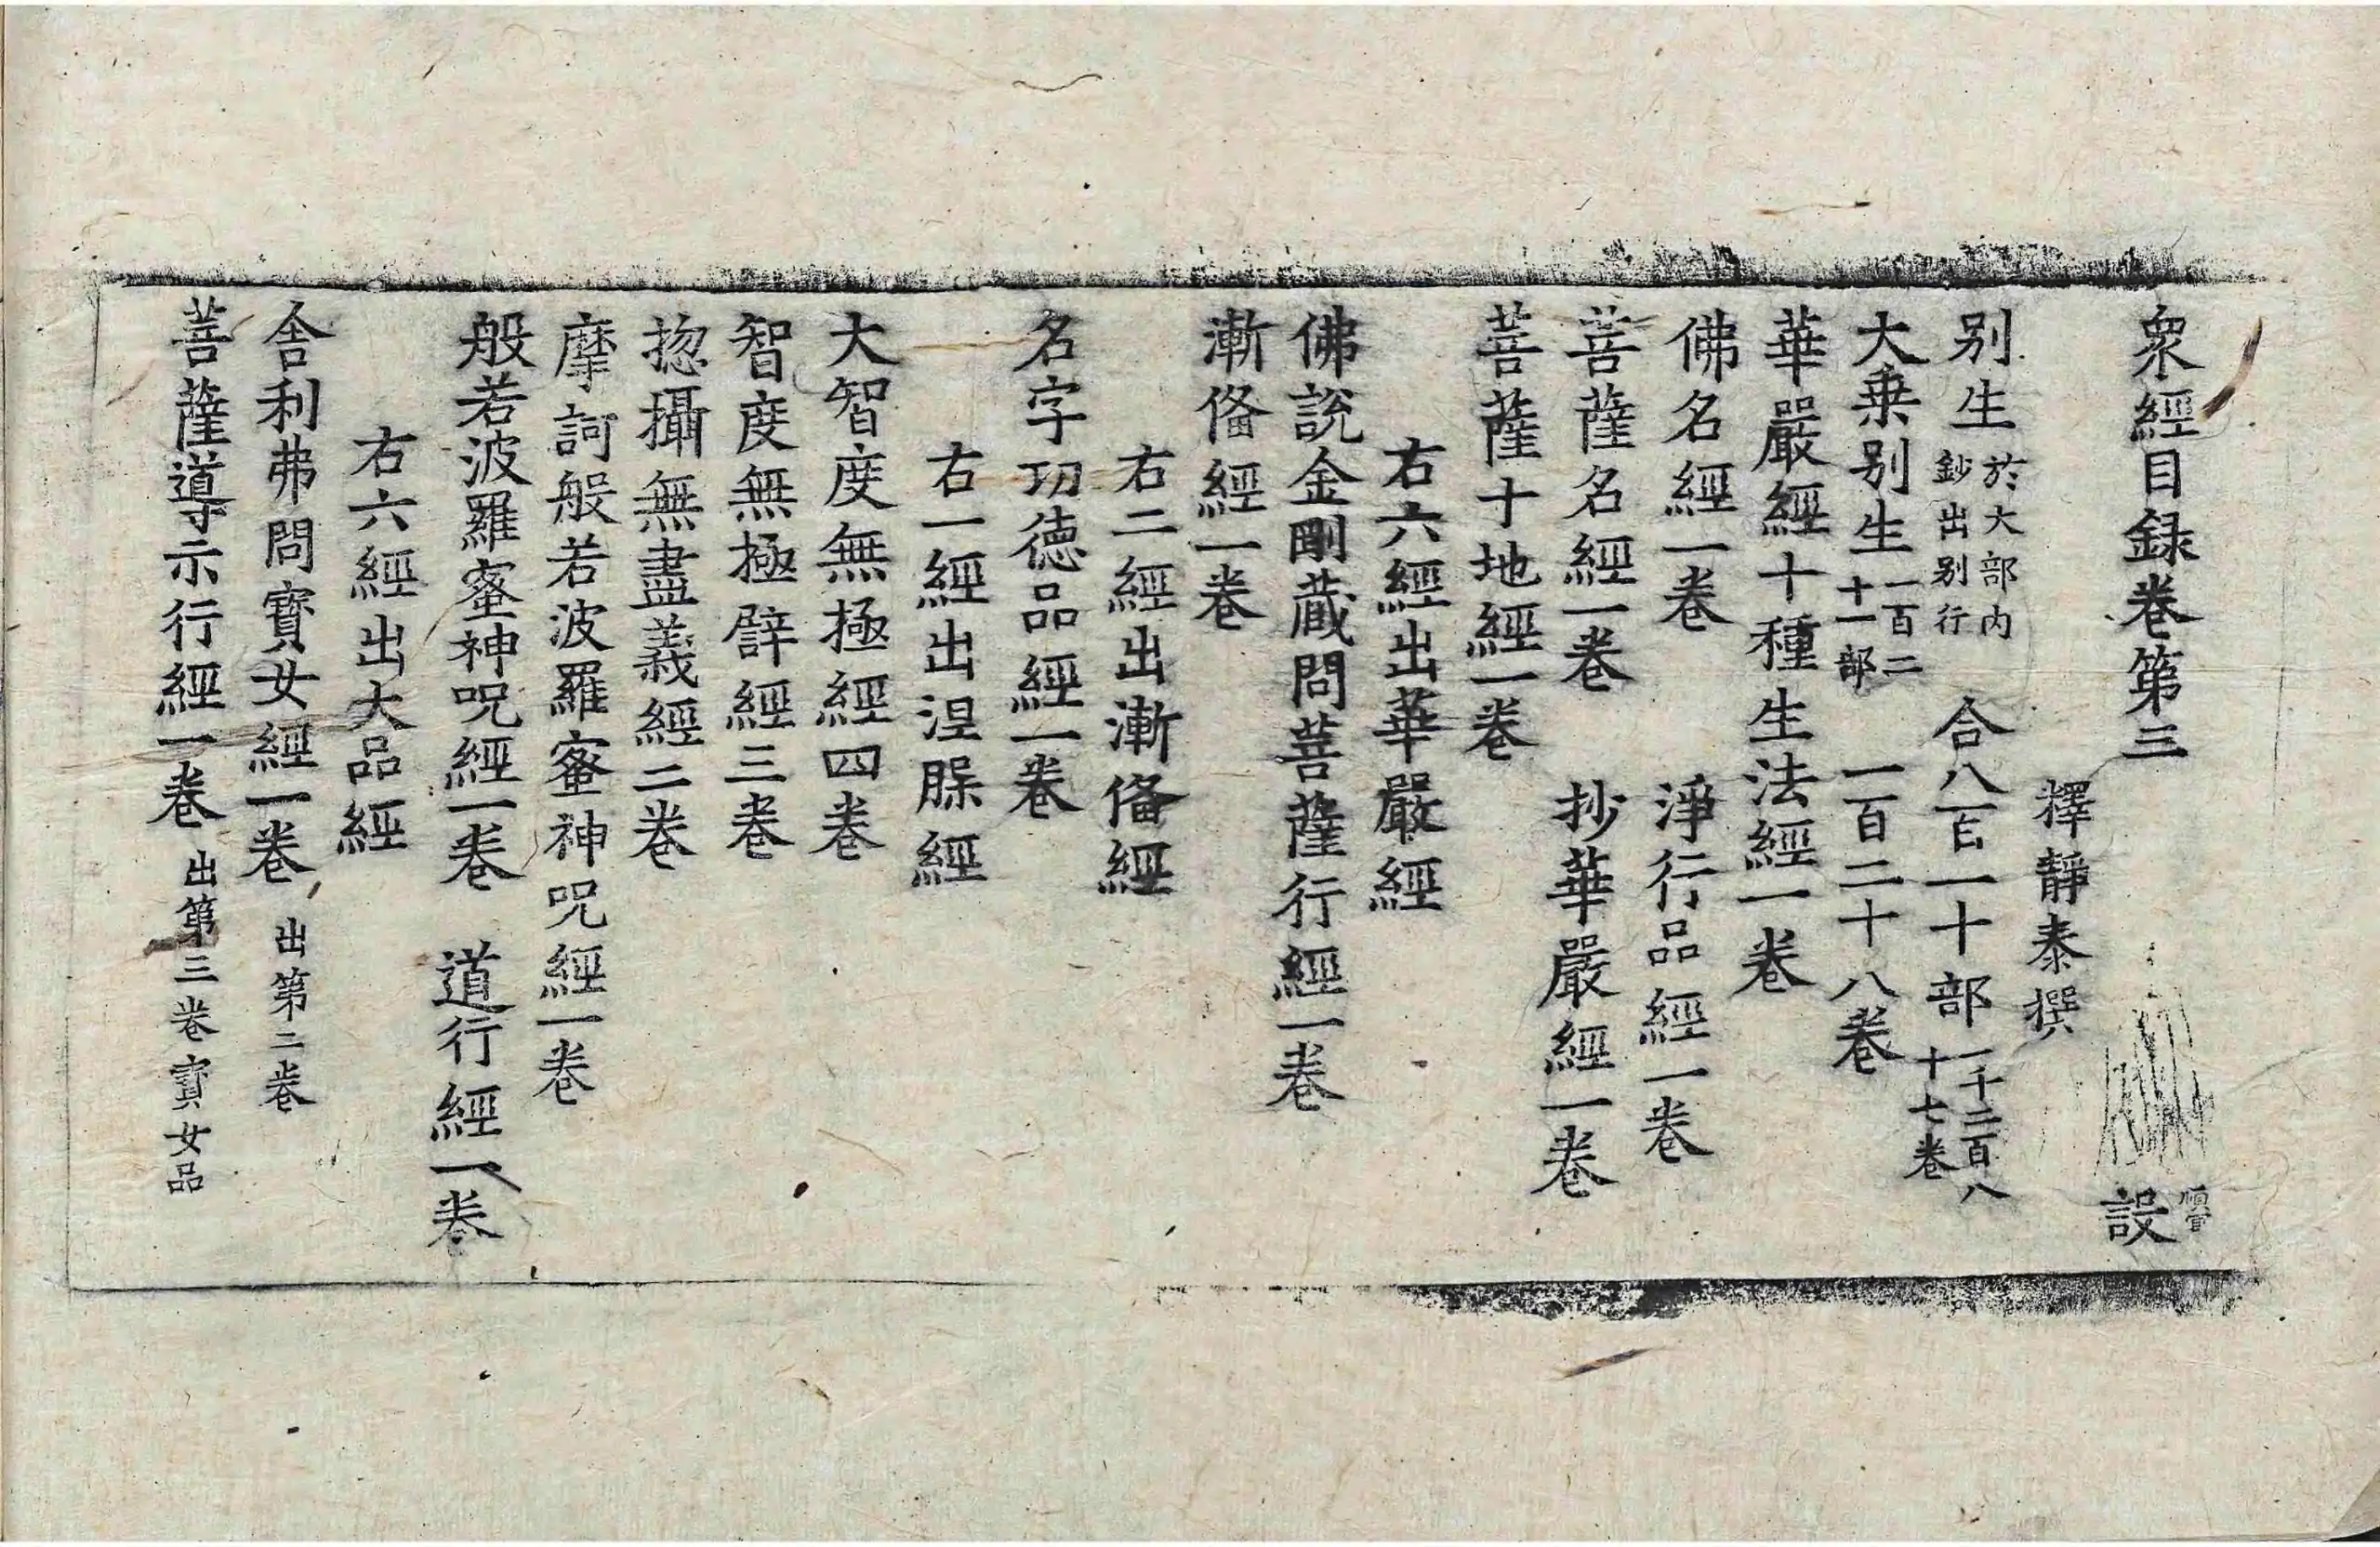 衆經目録卷第三 設
釋靜泰撰
别生 於大部内鈔出别行 合八百一十部 一千二百八十七卷
大乗别生 一百二十一部 一百二十八卷
華嚴經十種生法經一卷
佛名經一卷 淨行品經一卷
菩薩名經一卷 抄華嚴經一卷
菩薩十地經一卷
右六經出華嚴經
佛説金剛蔵問菩薩行經一卷
漸俻經一卷
右二經出漸俻經
名字功德品經一卷
右一經出涅脲經
大智度無極經四卷
智度無極譬經三卷
揔攝無盡義經二卷
摩訶般若波羅蜜神呪經一卷
般若波羅蜜神呪經一卷 道行經一卷
右六經出大品經
舍利弗問寶女經一卷 出第二卷
菩薩導示行經一卷 出第三卷寶女品